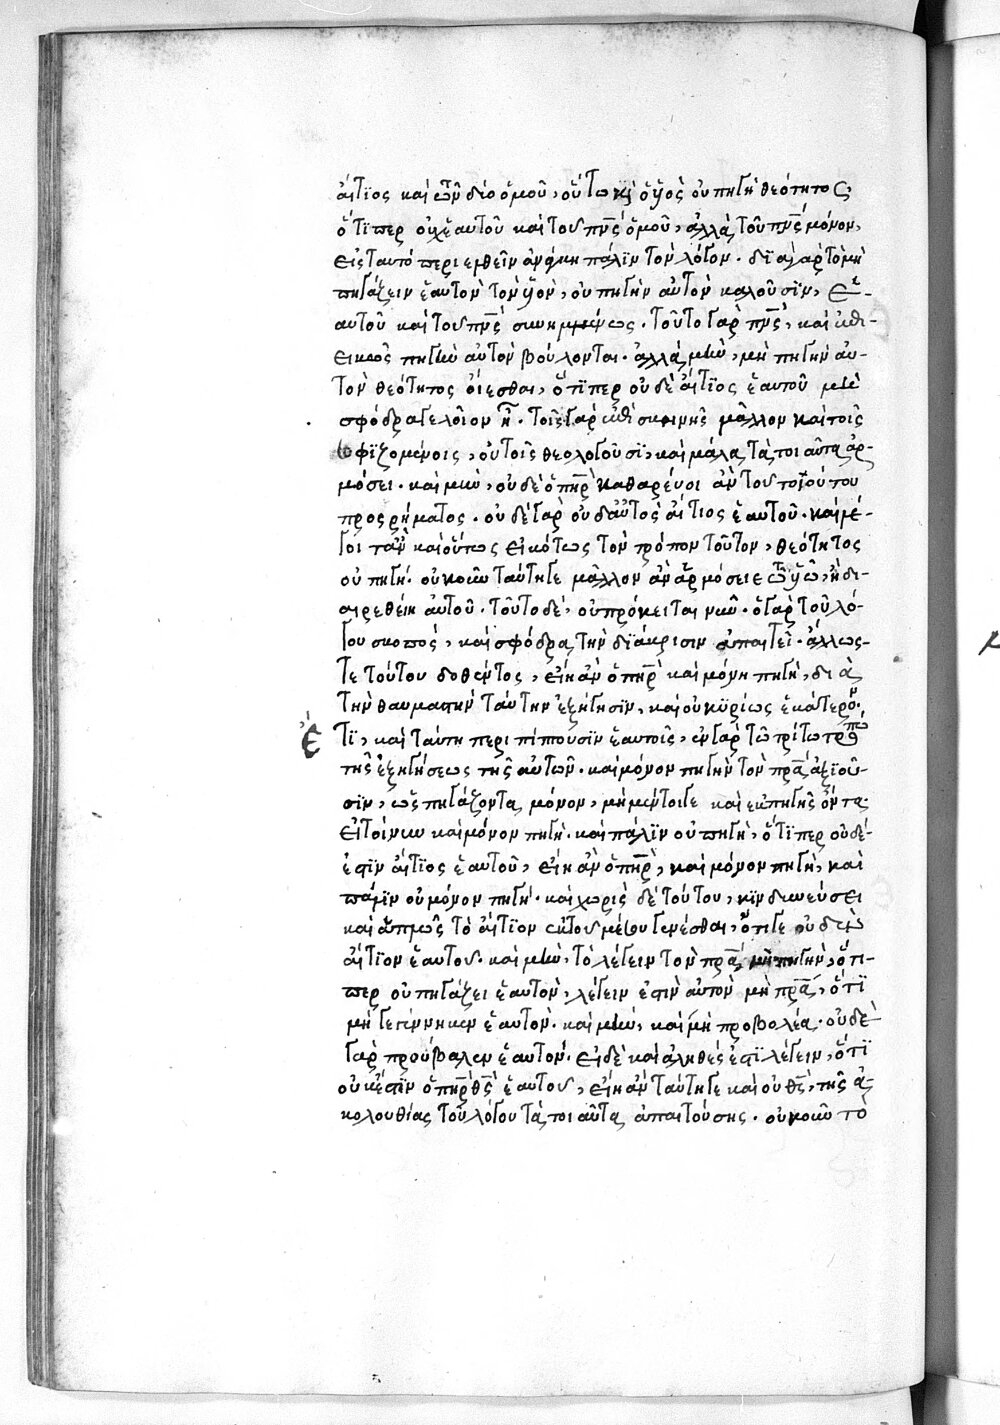 αἴτϊος καὶ τῶν δύο ὁμοῦ, οὕτω καὶ ὁ υἱὸς οὐ πηγὴ θεότητος,
ὅτϊπερ οὐχ ἑαυτοῦ καὶ τοῦ πνς ὁμοῦ, ἀλλὰ τοῦ πνς μόνον,
εἰς ταυτὸ περιελθεῖν ἀνάγκη πάλϊν τὸν λόγον. δϊὰ γὰρ τὸ μὴ
πηγάζειν ἑαυτὸν τὸν υἱὸν, οὐ πηγὴν αὐτὸν καλοῦσϊν, ἐξ
αὐτοῦ καὶ τοῦ πνς συνημμένως. τοῦτο γὰρ πνς, καὶ
εἰκὸς πηγὴν αὐτὸν βούλονται. ἀλλὰ μὴν, μὴ πηγὴν αὐ-
τὸν θεότητος οἴεσθαι, ὅτϊπερ οὐδὲ αἴτϊος ἑαυτοῦ
σφόδρα γελοῖον ἦν. τοῖς γὰρ ἐπὶ σκηνῆς μᾶλλον καὶ τοῖς
σοφϊζομένοις, οὐ τοῖς θεολογοῦσϊ, καὶ μάλα τὰ τοιαῦτα ἁρ-
μόσει. καὶ μὴν, οὐδὲ ὁ πηρ καθαρεύοι ἂν τοῦ τοιούτου
προσρήματος. οὐδὲ γὰρ οὐδ' αὐτὸς αἴτιος ἑαυτοῦ. καὶ μέ-
τοι τἂν καὶ οὕτως εἰκότως τὸν τρόπον τοῦτον, θεότητος
οὐ πηγή. οὐκοῦν ταύτηγε μᾶλλον ἂν ἁρμόσειε τῶ υἱῶ, ἢ δι-
αιρεθείη αὐτοῦ. τοῦτο δὲ, οὐ πρόκειται νῦν. ὁ γὰρ τοῦ λό-
γου σκοπὸς, καὶ σφόδρα τὴν διάκρισιν ἀπαιτεῖ. ἄλλως
τε τούτου δοθέντος, εἴη ἂν ὁ πηρ καὶ μόνη πηγὴ, διὰ
τὴν θαυμαστὴν ταύτην ἐξήγησϊν, καὶ οὐ κϋρίως ἑκάτερον.
Ἔτϊ, καὶ ταύτη περιπίπτουσϊν ἑαυτοῖς, ἐν γὰρ τῶ τρίτω τρόπω
τῆς ἐξηγήσεως τῆς αὐτῶν. καὶ μόνον πηγὴν τὸν πρα ἀξϊοῦ-
σϊν, ὡς πηγάζοντα μόνον, μὴ μέντοιγε καὶ ἐκ πηγῆς ὄντα.
εἰ τοίνυν καὶ μόνον πηγὴ. καὶ πάλϊν οὐ πηγὴ, ὅτϊπερ οὐδέ
ἐστϊν αἴτϊος ἑαυτοῦ, εἴη ἂν ὁ πηρ, καὶ μόνον πηγὴ, καὶ
πάλϊν οὐ μόνον πηγή. καὶ χωρὶς δὲ τούτου, κϊνδυνεύσει
καὶ ἁπλῶς τὸ αἴτϊον ἐκ τοῦ μέσου γενέσθαι, ὅτιγε οὐδὲν
αἴτϊον ἑαυτοῦ. καὶ μὴν, τὸ λέγειν τὸν πρα μὴ πηγὴν, ὅτι-
περ οὐ πηγάζει ἑαυτὸν, λέγειν ἐστὶν αὐτὸν μὴ πρα, ὅτϊ
μὴ γεγέννηκεν ἑαυτόν. καὶ μὴν, καὶ μὴ προβολέα. οὐδὲ
γὰρ προύβαλεν ἑαυτόν. εἰ δὲ καὶ ἀληθές ἐστϊ λέγειν, ὅτϊ
οὐκ ἔστϊν ὁ πηρ θς ἑαυτοῦ, εἴη ἂν ταύτηγε καὶ οὐ θς, τῆς ἀ-
κολουθίας τοῦ λόγου τὰ τοιαῦτα ἀπαιτούσης. οὐκοῦν τὸ